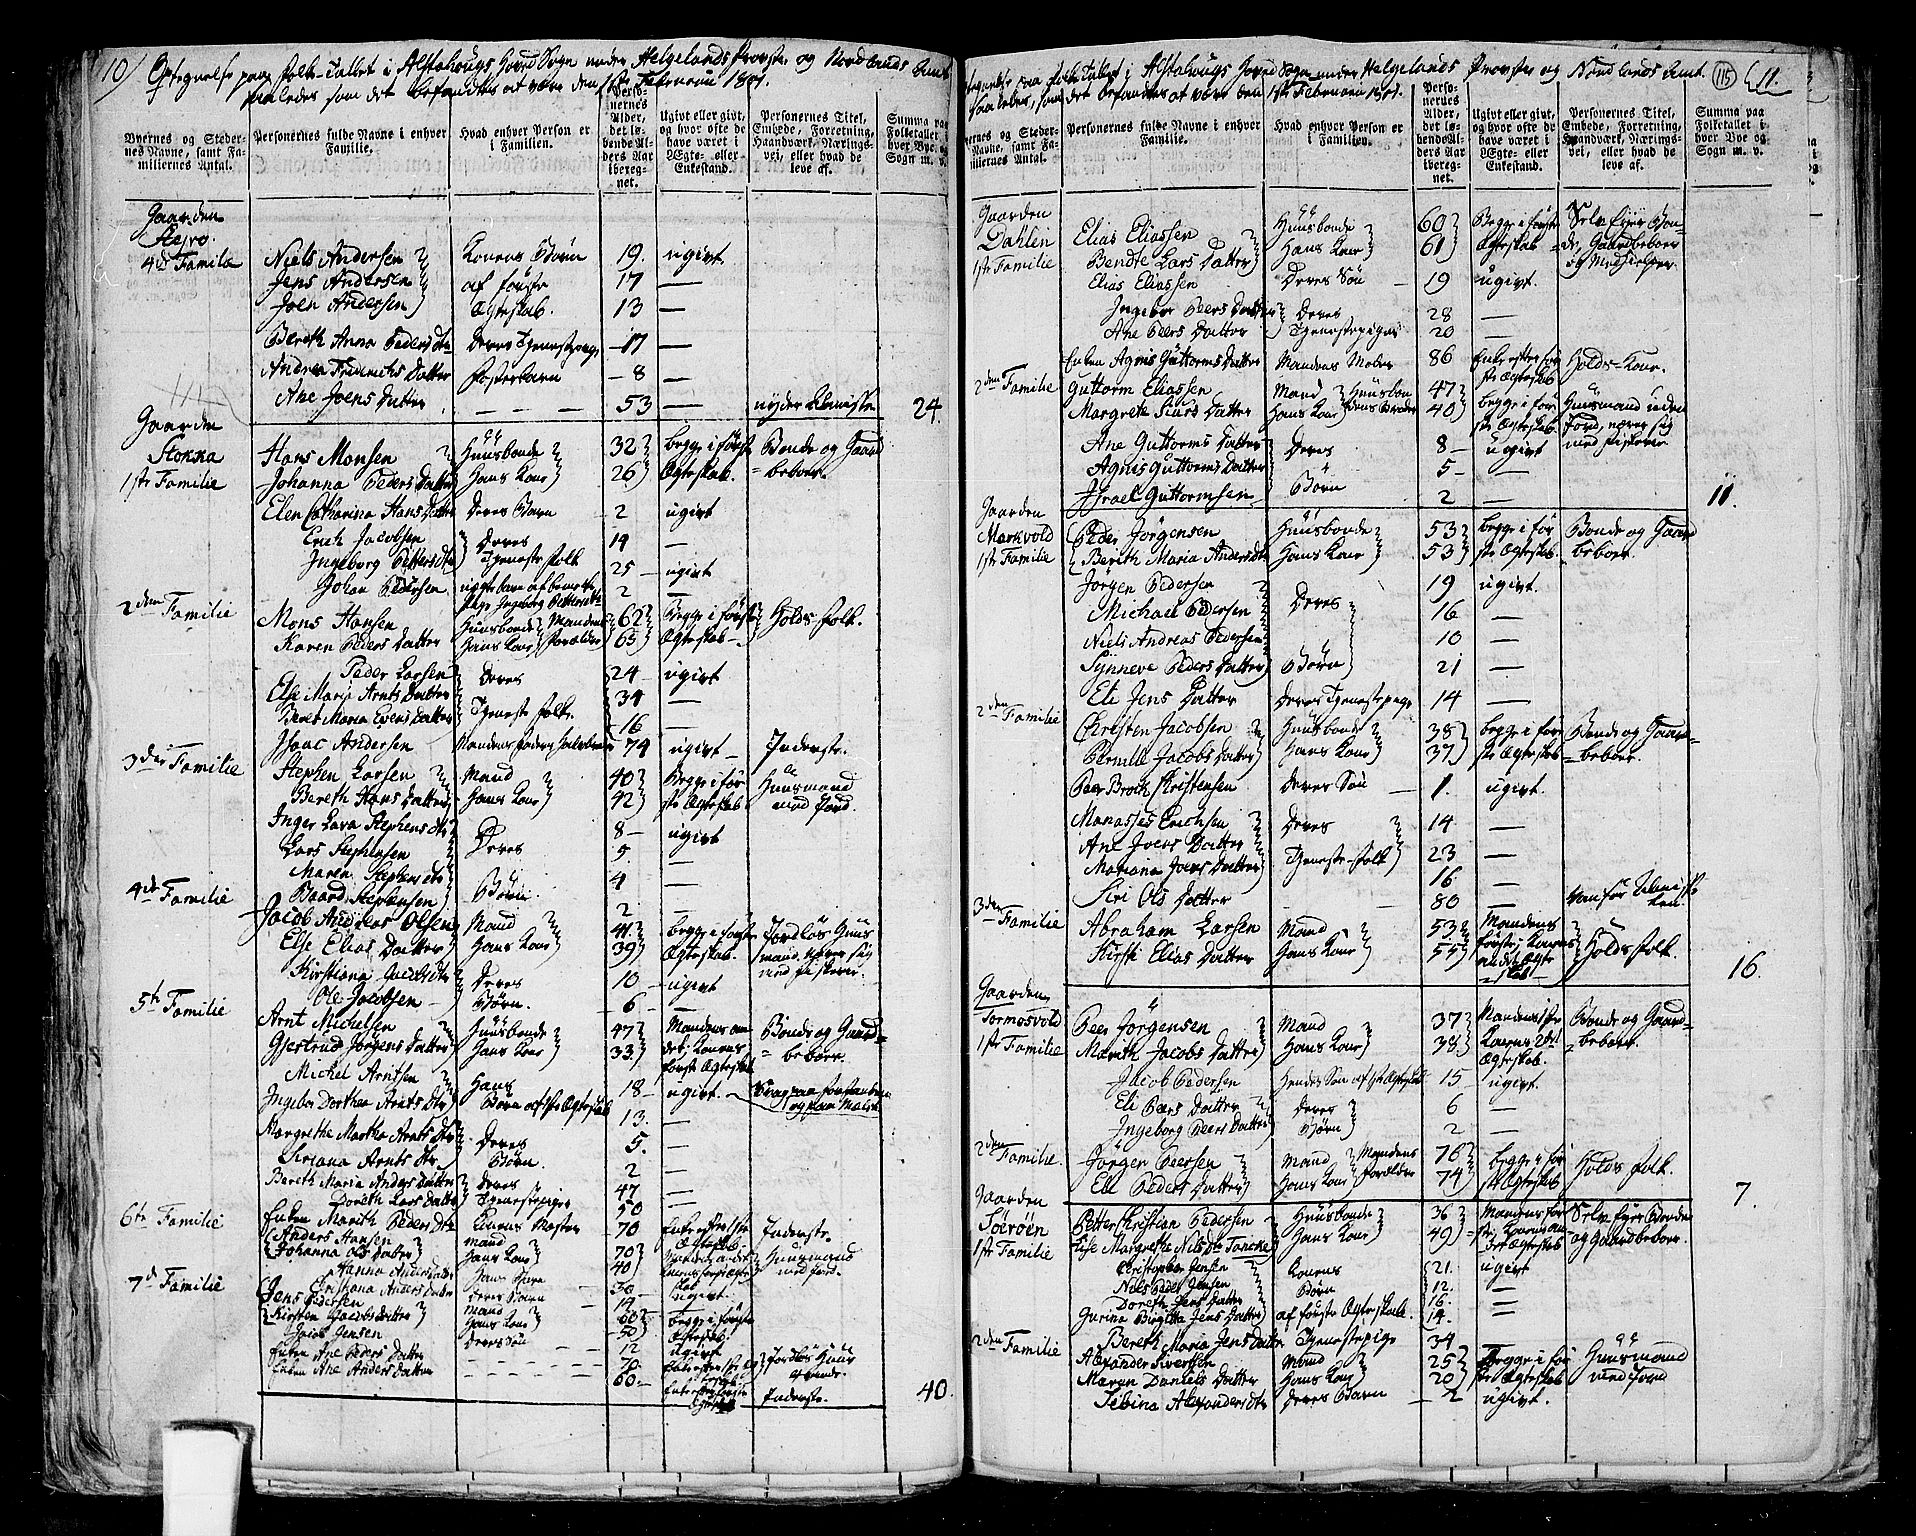 10) Optegnelse paa Folke-Tallet i Alstahougs Hoved Sogn under Helgelands Provstie og Nordlands Amt
saaledes som det befandtes at være den 1ste Februarii 1801.
Byernes og Stedernes Navne, samt Familiernes Antal.
Personernes fulde Navne i enhver Familie.
Hvad enhver Person er i Familien.
Personernes Alder, det løbende Alders Aar iberegnet.
Ugivt eller givt, og hvor ofte de have været i Ægte- eller Enkestand.
Personernes Titel, Embede, Forretning, Haandværk, Næringsvei, eller hvad de leve af.
Summa paa Folketallet i hver Bye og Sogn m. v.
Gaarden
4de Familie Niels Andersen Konens Børn 19. ugivt
Jens Andersen af første 17 —
Joen Andersen Ægteskab. 13 —
Bereth Anna Peders Dtr Deres Tjenestepige 17 —
Andrea Friderichs Datter Fosterbarn 8 —
Ane Joens Datter — — — 53 — nyder Almisse 24.
Gaarden
Stokka Hans Monsen Huusbonde 32 begge i første Bonde og Gaard
1ste Familie Johanna Peders Datter Hans Kone 26 Ægteskab. beboer.
Elen Catharina Hans Datter Deres Barn 2 ugivt
Erich Jacobsen Deres 19 —
Ingeborg Petters Dtr Tjeneste folk 25 ugivt
Johan Pedersen 2 —
2den Familie Mons Hansen Huusbonde Mandens 62 Begge i første Holds-folk.
Karen Peders Datter Hans Kone Forældre 65 Ægteskab
Peder Larsen Deres 24 ugivt
Else Maria Arnts Datter 34 —
Beret Maria Evens Datter Tjeneste folk. 16 —
Isaac Andersen 74 ugivt Inderste.
3die Familie Stephen Larsen Mand 40 Begge i før Huusmand
Bereth Hans Datter Hans Kone 42 ste Ægteskab med Jord.
Inger Lava Stephens Dtr 8 ugivt
Lars Stephensen Deres 5 —
Maren Stephens Dtr 4 —
4de Familie Baard Stephensen Børn 2 —
Jacob Andreas Olsen Mand 41 begge i første Jordløs Huus
Else Elias Datter Hans Kone 39 Ægteskab. mand, nærer sig
Kirstiana Jacobs Dtr Deres 10 ugivt med fiskerie.
Ole Jacobsen Børn. 6 —
5te Familie Arnt Michelsen Huusbonde 47 Mandens an Bonde og Gaard
Gjertrud Jørgens Datter Hans Kone 33 det, Konens beboer.
første Ægteskab
Michel Arntsen Hans 18 ugivt.
Ingeber Dorthea Arnts Dtr Børn af 1ste Ægteskab 13. —
Margrethe Martha Arnts Dtr Deres 5. —
Siriana Arnts Dtr Børn. 2 —
Bereth Maria Anders Datter Deres 47 —
Doreth Lars Datter Tjenestepige 50 —
6te Familie Enken Marith Peders Dtr Konens Moder 70 Inderste.
Anders Hansen Mand 70 Huusmand
Johanna Ols Datter Hans Kone 40 med Jord.
Hanna Anders Datter
Christiana Anders Datter Deres Barn 14
7de Familie Jens Pedersen Mand 60 begge i første
Kirsten Jacobs Datter Hans Kone 50 Ægteskab
Jacob Jensen Deres Søn 12 ugivt
Enken Ane Peders Datter — — — 70 Jordløs Huus
Enken Ane Anders Datter — — — 60 Inderste. 40.
Optegnelse paa Folke Tallet i Alstahougs Hoved Sogn under Helgelands Provstie og Nordlands Amt. 115 11.
saaledes, som det befandtes at være den 1ste Februarii 1801.
Byernes og Stedernes Navne, samt Familiernes Antal.
Personernes fulde Navne i enhver Familie.
Hvad enhver Person er i Familien.
Personernes Alder, det løbende Alders Aar iberegnet.
Ugivt eller givt, og hvor ofte de have været i Ægte- eller Enkestand.
Personernes Titel, Embede, Forretning, Haandværk, Næringsvei, eller hvad de leve af.
Summa paa Folketallet i hver Bye og Sogn m. v.
Gaarden
Dahlen Elias Eliassen Huusbonde 60 Begge i første Selv Eyer Bon
1ste Familie Bendte Lars Datter Hans Kone 61 Ægteskab de, Gaardbeboer
Elias Eliassen Deres Søn 19 ugivt.
Ingeber Peers Datter Deres 28 —
Ane Peers Datter Tjenestepiger 20 —
Enken Agnis Guttorms Datter Mandens Moder 86 Holds-Kone.
2den Familie Guttorm Eliassen Mand 47 begge i før Huusmand uden
Margrete Siurs Datter Hans Kone 40 ste Ægteskab Jord, nærer sig
Ane Guttorms Datter Deres 8 ugivt med fiskerie
Agnis Guttorms Datter 5 —
Israel Guttormsen Børn 2 — 11.
Gaarden
Markvold Peder Jörgensen Huusbonde 53 begge i før Bonde og Gaard
1ste Familie Berith Maria Anders Dtr Hans Kone 53 ste Ægteskab. beboer.
Jörgen Pedersen 19 ugivt.
Michael Pedersen Deres 16 —
Niels Andreas Pedersen 10 —
Synneve Peders Datter Børn 21 —
Eli Jens Datter Deres Tjenestepige 14 —
2den Familie Christen Jacobsen Huusbonde 38 begge i før Bonde og Gaard
Pernille Jacobs Datter Hans Kone 37 ste Ægteskab beboer.
Peer Broch Kristensen Deres Søn 1. ugivt.
Manasses Erichsen Deres 14 —
Ane Joens Datter 23 —
Mariana Joens Datter Tjeneste-folk 16 —
Siri Ols Datter 80 —
3die Familie Abraham Larsen Mand 53 Mandens
Kirsti Elias Datter Hans Kone 55 første, Konens Holds folk.
andet Ægte
skab 16.
Gaarden
Tormosvold Peer Jörgensen Mand 37 Mandens 1ste Bonde og Gaard
1ste Familie Marith Jacobs Datter Hans Kone 38 Konens 2det beboer.
Ægteskab.
Jacob Pedersen Hendes Søn af 1ste Ægteskab 15 ugivt
Eli Peers Datter Deres 6 —
Ingeborg Peers Datter Børn 2 —
2den Familie Jörgen Peersen Mand Mandens 76 begge i før Holds folk.
Eli Peders Datter Hans Kone Forældre 74 ste Ægteskab
7.
Gaarden
Söeröen Petter Christian Pedersen Huusbonde 36 Mandens før Selv Eyer Bonde
1ste Familie Else Margrethe Nils Dtr Tancke Hans Kone 49 og Gaardbeboer.
Christopher Jensen Konens 21. ugivt
Niels Peder Jensen Børn 12. —
Doreth Jens Datter 16. —
Jurina Birgitta Jens Datter af første Ægteskab. 14. —
Bereth Maria Jens Datter Tjenestepige 34
2den Familie Alexander Sivertsen Mand 25 Begge i før Huusmand
Maren Daniels Datter Hans Kone 20 ste Ægteskab med Jord
Tibina Alexanders Dtr Deres Barn 2 ugivt.